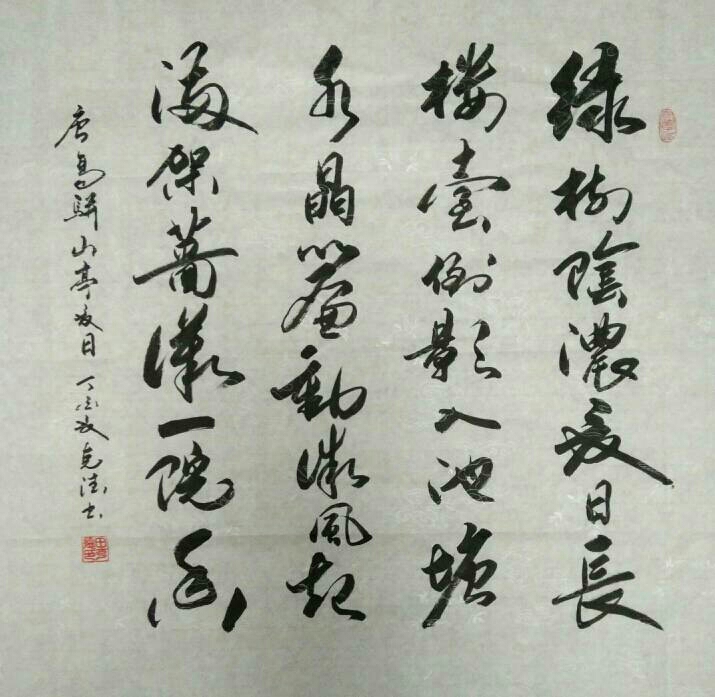 綠樹陰濃夏日長
樓臺倒影入池塘
水晶簾動微風起
滿架薔薇一院香
唐高駢山亭夏日 丁酉夏克书